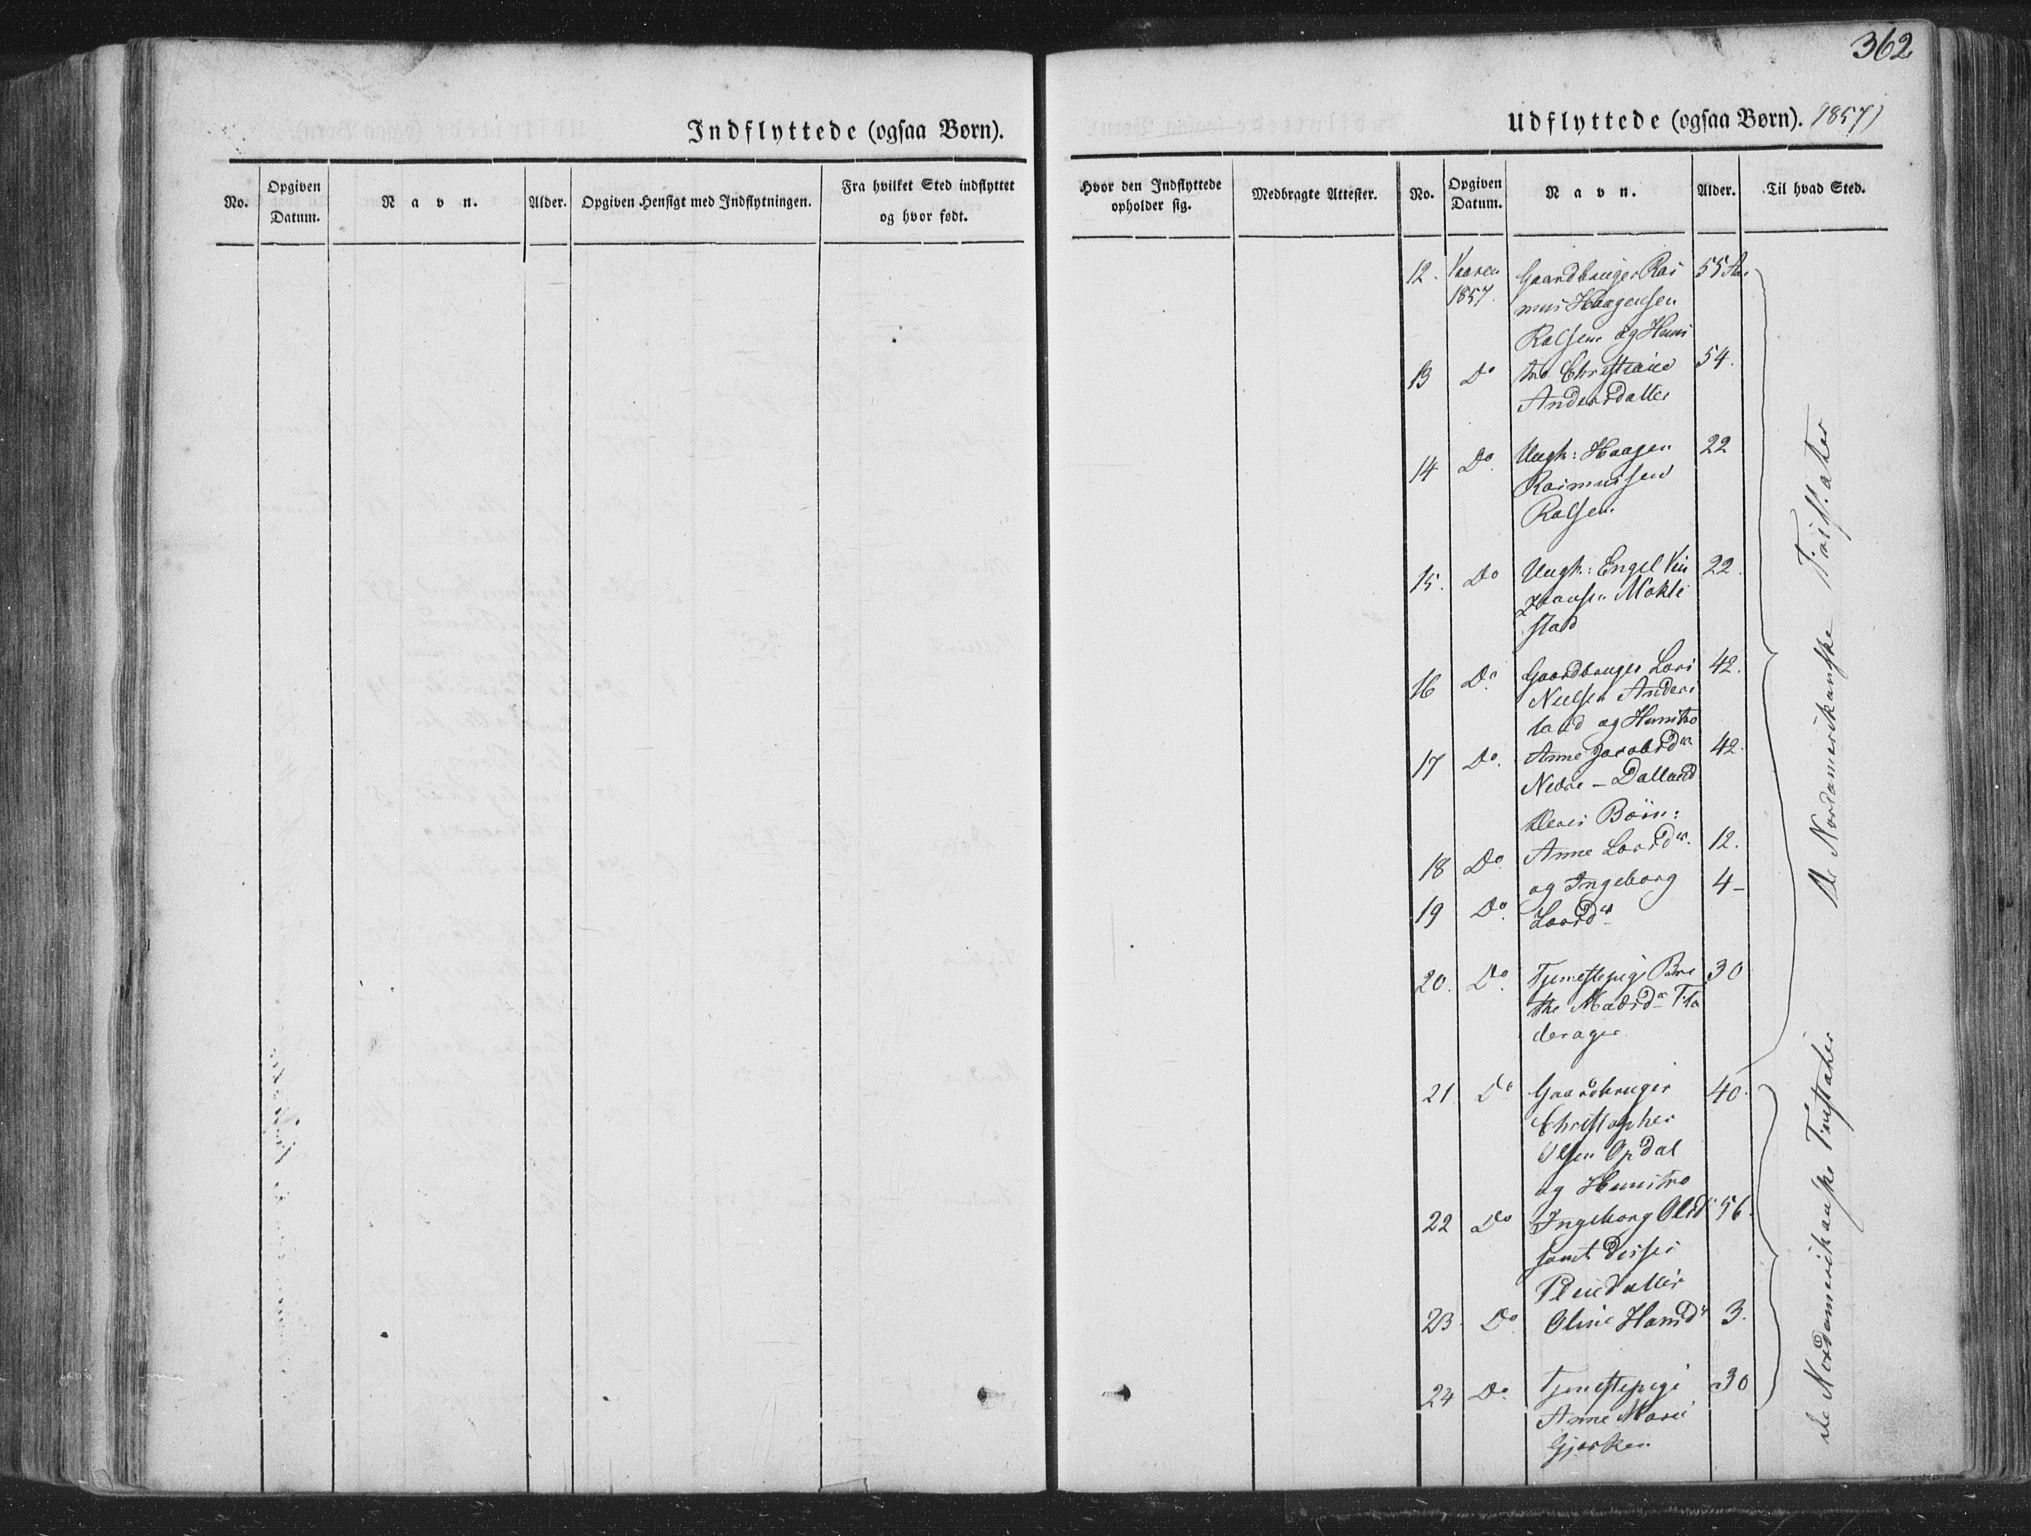 362
Indflyttede (ogsaa Børn).
No.
Opgiven
Datum.
Navn.
Alder.
Opgiven Hensigt med Indflytningen.
Fra hvilket Sted indflyttet
og hvor født.
Udflyttede (ogsaa Børn). (1857)
Hvor den Indflyttede
opholder sig.
Medbragte Attester.
No.
Opgiven
Datum.
Navn.
Alder.
Til hvad Sted.
12. Vaaren Gaardbruger Ras 55 Aar
1857. mus Haagensen
og Hust
13 Do tro Christiane 54.
Andersdatter
14 Do. Ungk: Haagen 22
Rasmussen
15. Do Ungk: Engel 22.
stad
16 Do. Gaardbruger Lars 42.
Nielsen Anders
land og Hustro
17 Do. Anne Jacobsdr 42.
Nedre - Dalland
deres Børn:
18 Do. Anne Larsdr. 12.
og Ingeborg 4-
19 Do. Larsdr
20. Do. Tjenestepige Bre 30
the Madsdr
21 Do Gaardbruger 40.
Christopher
Olsen Opdal
og Hustro
22 Do Ingeborg Olsd 56.
samt disses
Pleiedatter
23 Do. Oline Hansdr 3.
24 Do. Tjenestepige 30
Anne Marie
De Nordamerikanske Fristater
De Nordamerikanske Fristater